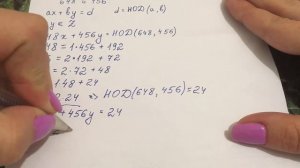 648 и 456
ax + by = d d = НОД(a, b)
y ∈ Z
48x + 456y = НОД(648, 456)
48 = 1·456 + 192
= 2·192 + 72
= 2·72 + 48
1·48 + 24
2·24 ⇒ НОД(648, 456) = 24
+ 456y = 24